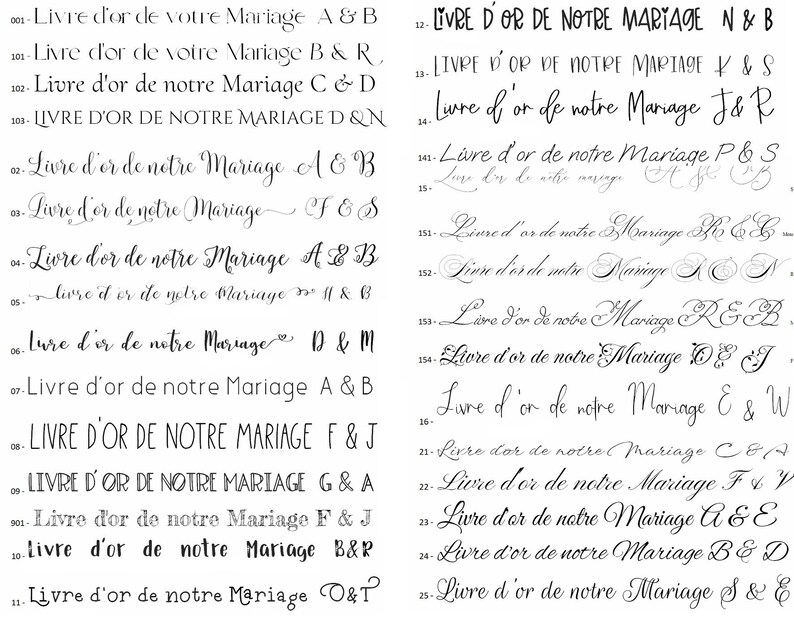 001 - Livre d'or de votre Mariage A & B
101 - Livre d'or de votre Mariage B & R
102 - Livre d'or de notre Mariage C & D
103 - LIVRE D'OR DE NOTRE MARIAGE D & N
02 - Livre d'or de notre Mariage A & B
03 - Livre d'or de notre Mariage F & S
04 - Livre d'or de notre Mariage A & B
05 - livre d'or de notre Mariage H & B
06 - Livre d'or de notre Mariage D & M
07 - Livre d'or de notre Mariage A & B
08 - LIVRE D'OR DE NOTRE MARIAGE F & J
09 - LIVRE D'OR DE NOTRE MARIAGE G & A
901 - Livre d'or de notre Mariage F & J
10 - Livre d'or de notre Mariage B&R
11 - Livre d'or de notre Mariage O&T
12 - LIVRE D'OR DE NOTRE MARIAGE N & B
13 - LIVRE D'OR DE NOTRE MARIAGE K & S
14 - Livre d'or de notre Mariage J & R
141 - Livre d'or de notre Mariage P & S
15 - Livre d'or de notre mariage A & B
151 - Livre d'or de notre Mariage R & G
152 - Livre d'or de notre Mariage R & N
153 - Livre d'or de notre Mariage R & B
154 - Livre d'or de notre Mariage O & J
16 - Livre d'or de notre Mariage E & W
21 - Livre d'or de notre Mariage C & A
22 - Livre d'or de notre Mariage F & V
23 - Livre d'or de notre Mariage A & E
24 - Livre d'or de notre Mariage B & D
25 - Livre d'or de notre Mariage S & E